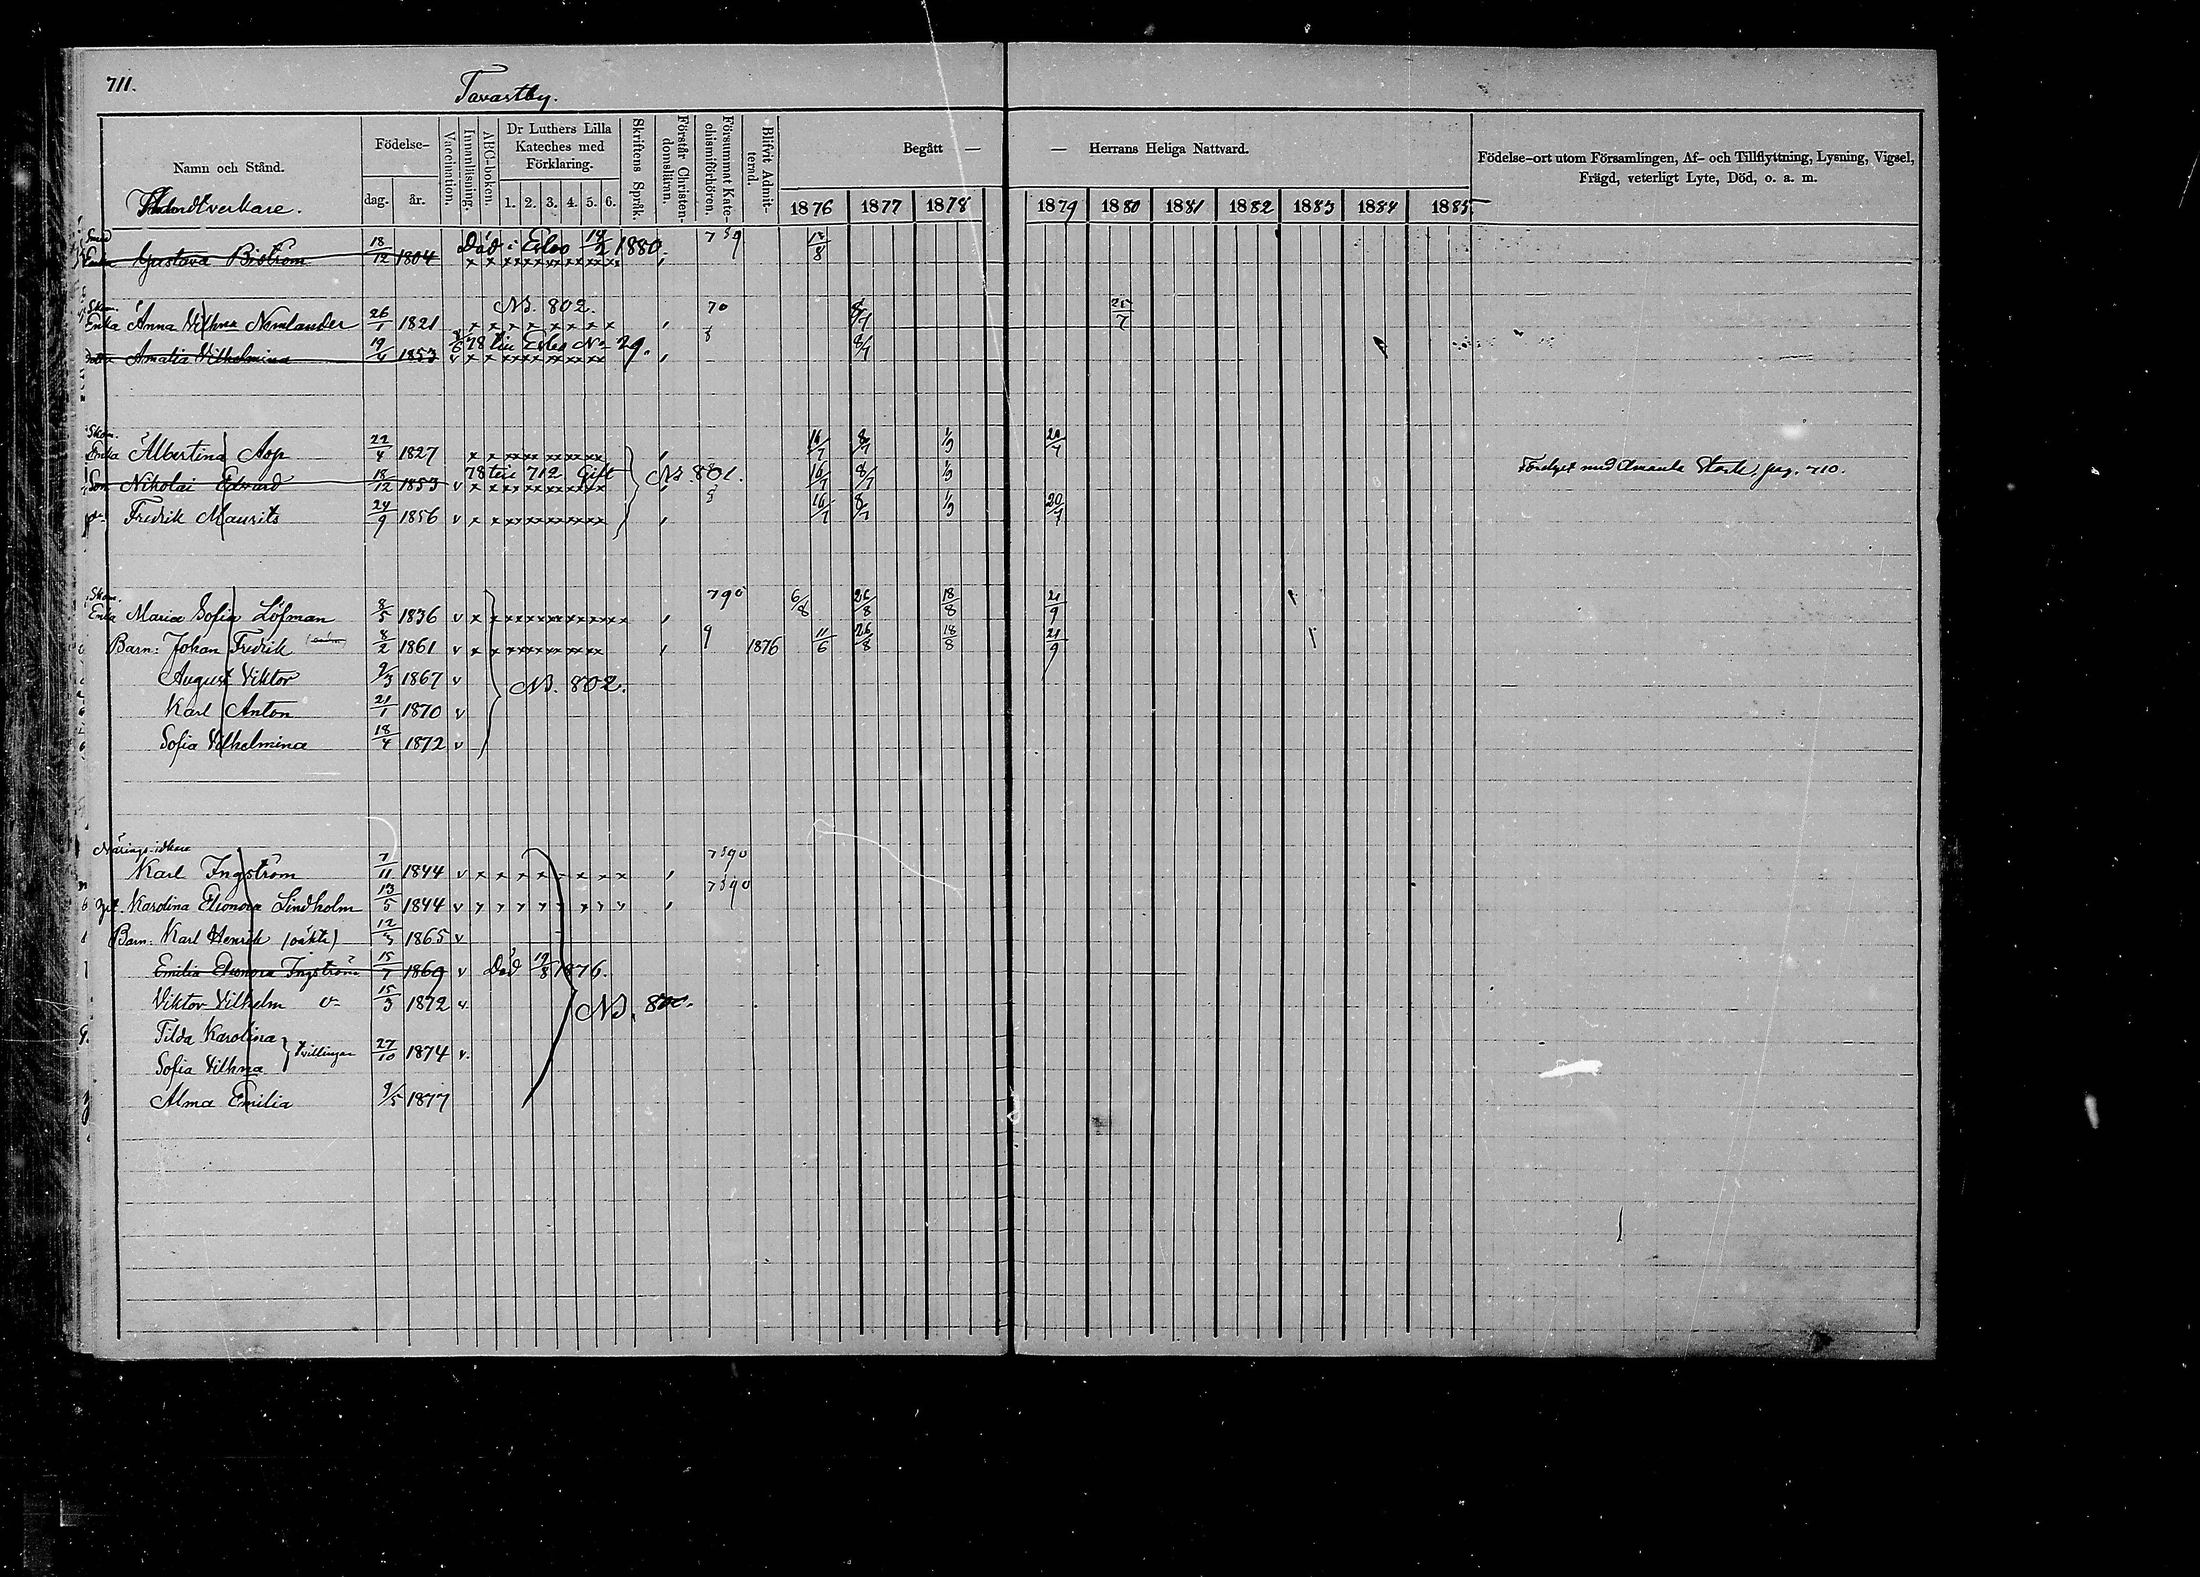 711.
Tavastby.
Namn och Stånd.
Födelse-
dag. år.
Vaccination.
Innanläsning.
ABC-boken.
Dr Luthers Lilla Kateches med Förklaring.
1. 2. 3. 4. 5. 6.
Skriftens Språk.
Förstår Christen-domsläran.
Försummat Kate-chismiförhören.
Blifvit Admit-terad.
Begått — — Herrans Heliga Nattvard.
1876 1877 1878 1879 1880 1881 1882 1883 1884 1885.
Födelse-ort utom Församlingen, Af- och Tillflyttning, Lysning, Vigsel,
Frägd, veterligt Lyte, Död, o. a. m.
Handtverkare.
Smed
Enka Gustava Biström 18/12 1804 Död i Esbo 14/2 1880. 7 8 9 12/8
Skom.
Enka Anna Vilhma Nimlander 26/1 1821 x x x x x x x x NB. 802. 70 8/7 25/7
Amalia Vilhelmina 19/4 1853 v 78 till Esbo No 29. 8 8/7
Skom.
Enka Albertina Aop 22/4 1827 16/7 8/7 1/9 20/7
Son Nikolai Edvard 18/12 1853 v 78 till 712 Gift NB. 801. 16/7 8/7 1/9 Förelyst med Amanda Stark, pag. 710.
Fredrik Maurits 24/9 1856 v 9 16/7 8/7 1/9 20/7
Skom.
Enka Maria Sofia Löfman 8/5 1836 v 790 6/8 26/8 18/8 21/9
Barn: Johan Fredrik 8/2 1861 v 9 1876 11/6 26/8 18/8 21/9
August Viktor 9/3 1867 v NB. 802.
Karl Anton 21/1 1870 v
Sofia Vilhelmina 18/4 1872 v
Närings-idkare
Karl Ingström 7/11 1844 v x x x x x x x x 7890
Karolina Eleonora Lindholm 13/5 1844 v 7890
Barn: Karl Henrik (oäkta) 12/3 1865 v
Emilia Eleonora Ingström 15/7 1869 v Död 19/8 1876.
Viktor Vilhelm 15/3 1872 v. NB.
Tilda Karolina
} tvillingar 27/10 1874 v.
Sofia Vilhma
Alma Emilia 9/5 1877